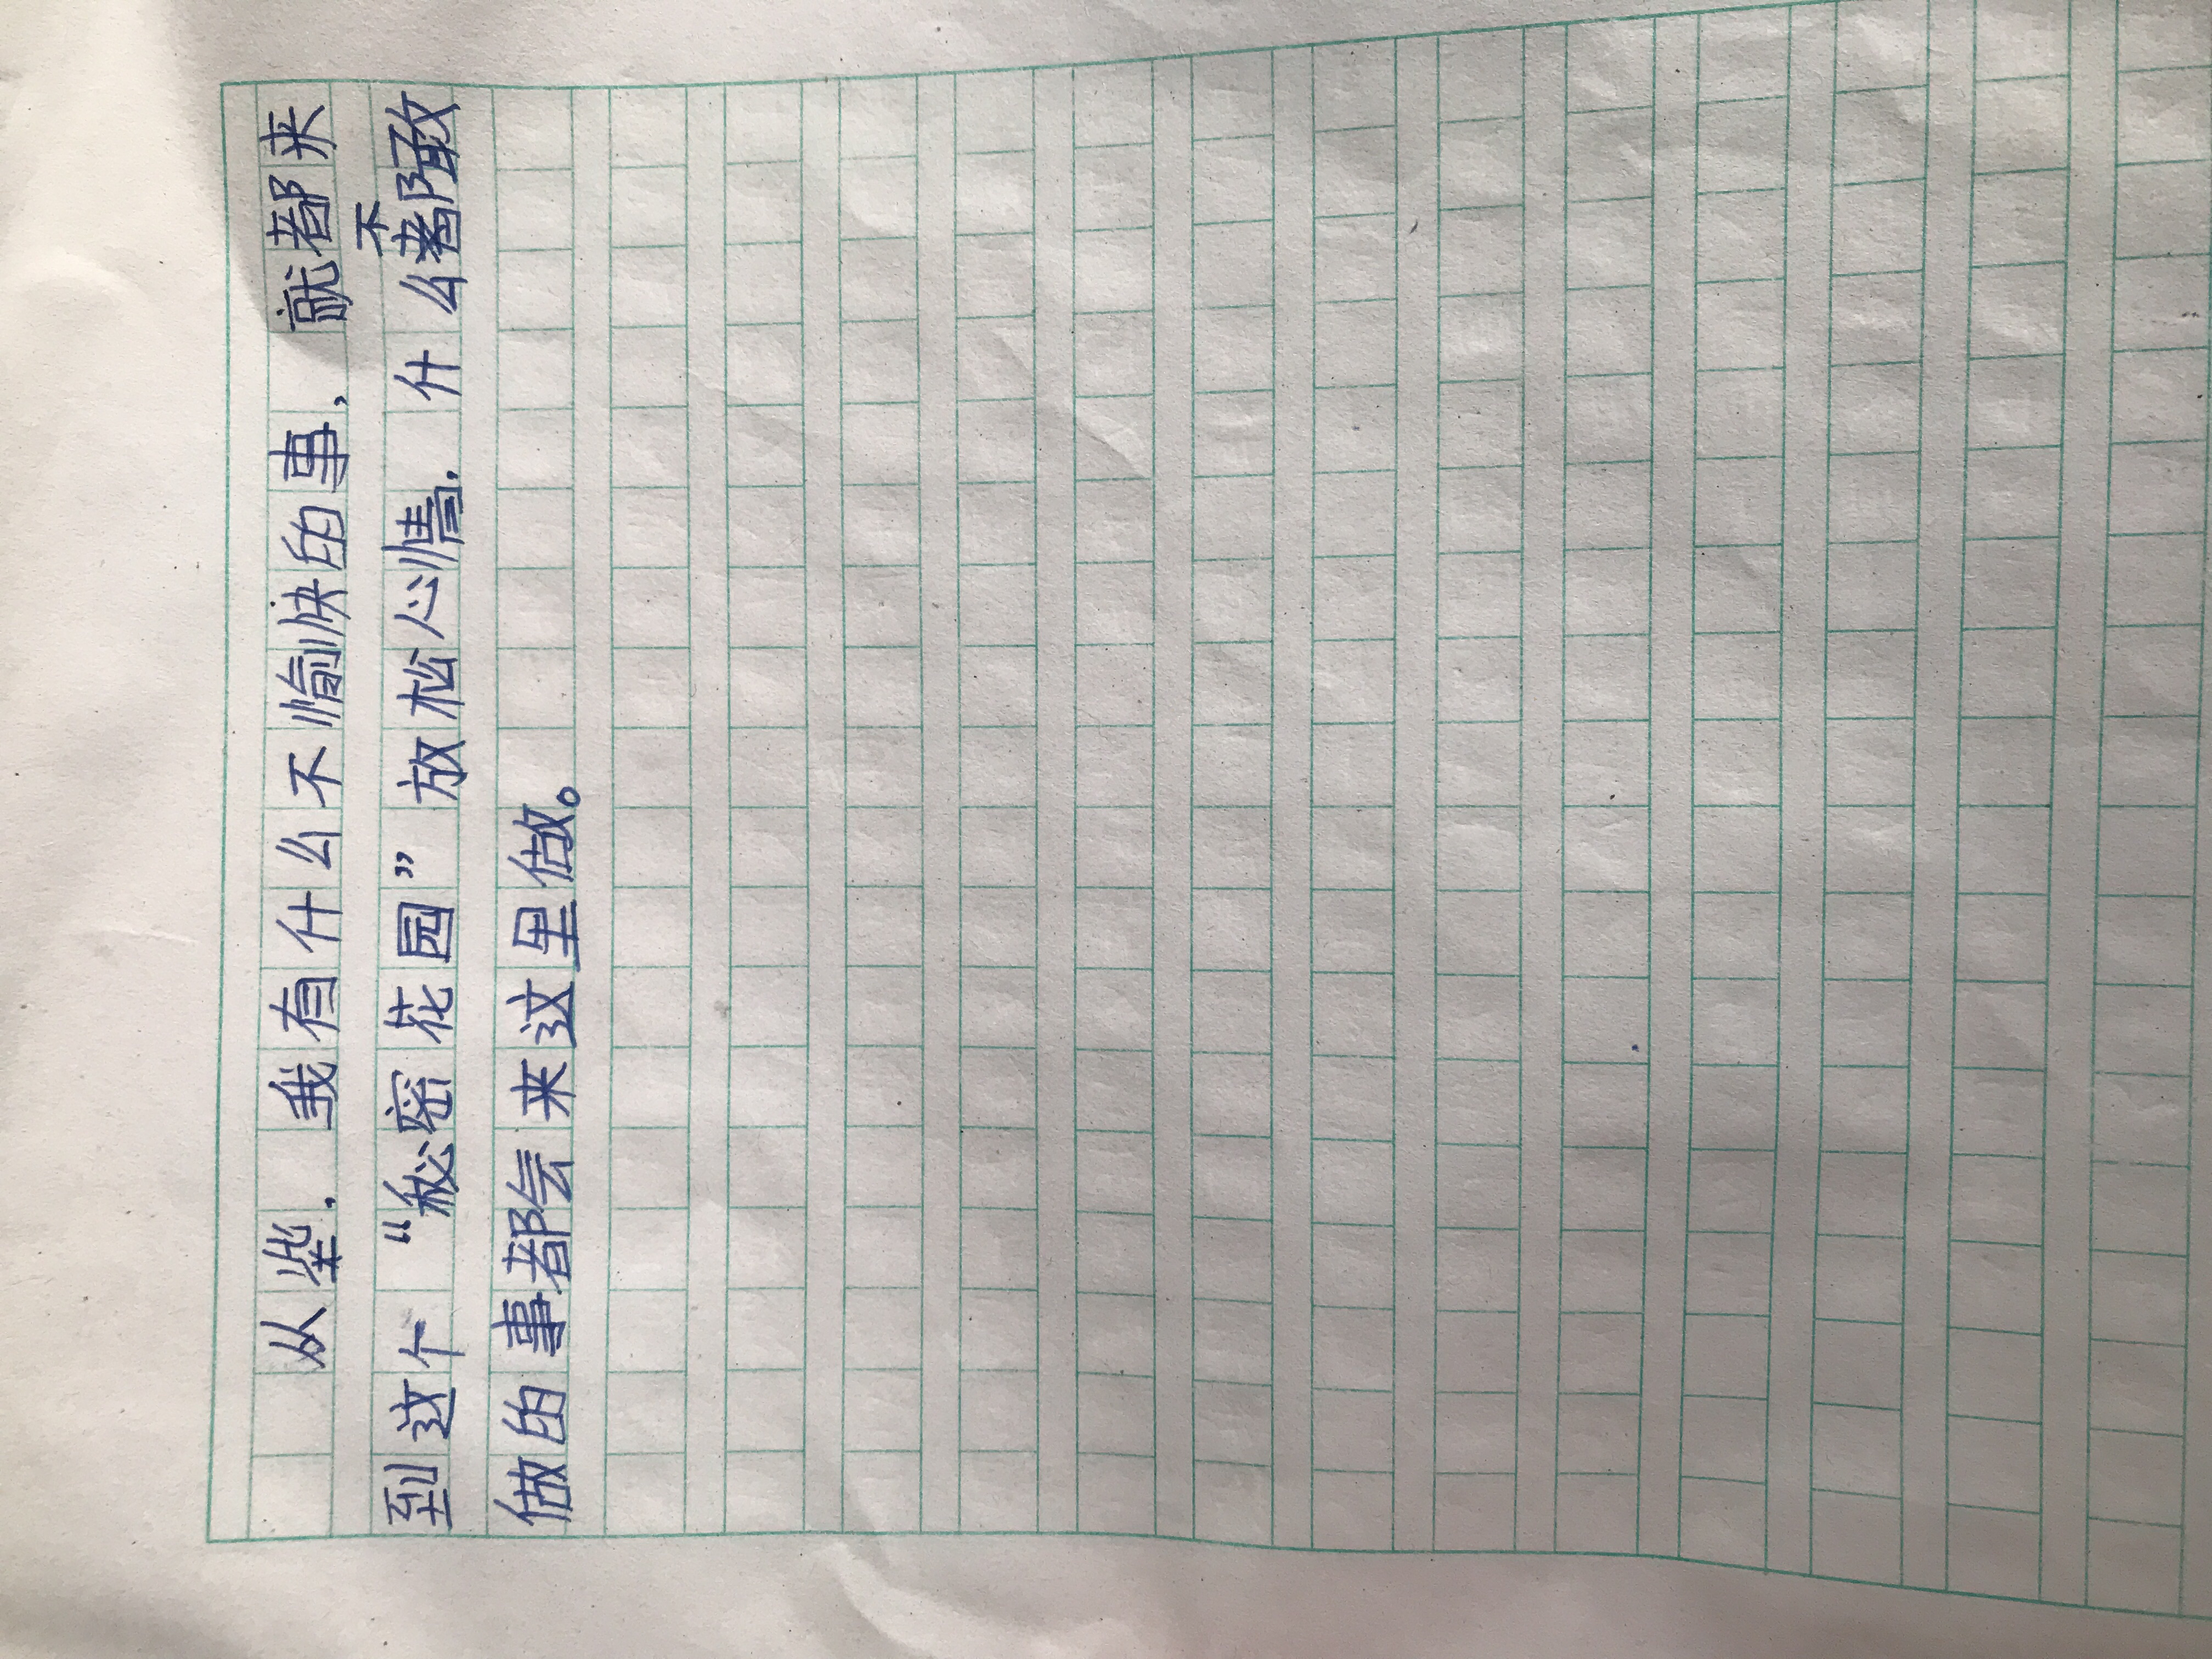 从柴，我有什么不愉快的事，就都来
到这个“秘密花园”放松心情，什么都不敢
做的事都会来这里做。